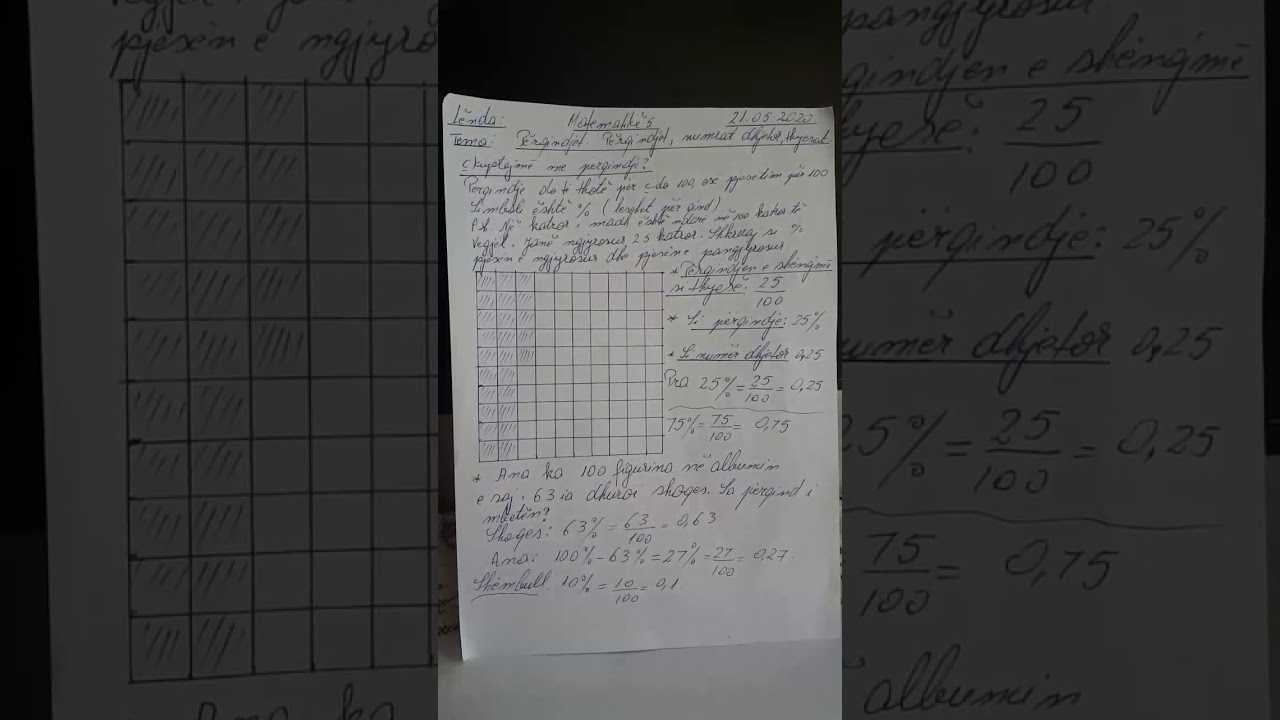 Lënda: Matematikë 5 21.05.2020
Tema: Përqindjet. Përqindjet, numrat dhjetor, thyesat
Çkuptojmë me përqindje?
Përqindje do të thotë për çdo 100, ose pjesëtim për 100
Simboli është % (lexohet për qind)
P.sh. Një katror i madh është ndarë në 100 katror të
vegjël. Janë ngjyrosur 25 katror. Shkruaj si %
pjesën e ngjyrosur dhe pjesën e pangjyrosur
* Përqindjen e shënojmë
si thyesë: 25/100
* Si përqindje: 25%
* Si numër dhjetor 0,25
Pra 25% = 25/100 = 0,25
75% = 75/100 = 0,75
* Ana ka 100 figurina në albumin
e saj. 63 ia dhuroi shoqes. Sa përqind i
mbetën?
Shoqes: 63% = 63/100 = 0,63
Ana: 100% - 63% = 27% = 27/100 = 0,27.
Shëmbull. 10% = 10/100 = 0,1